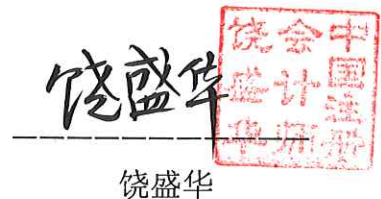 饶盛华
中国注册
会计师
饶盛华
饶盛华